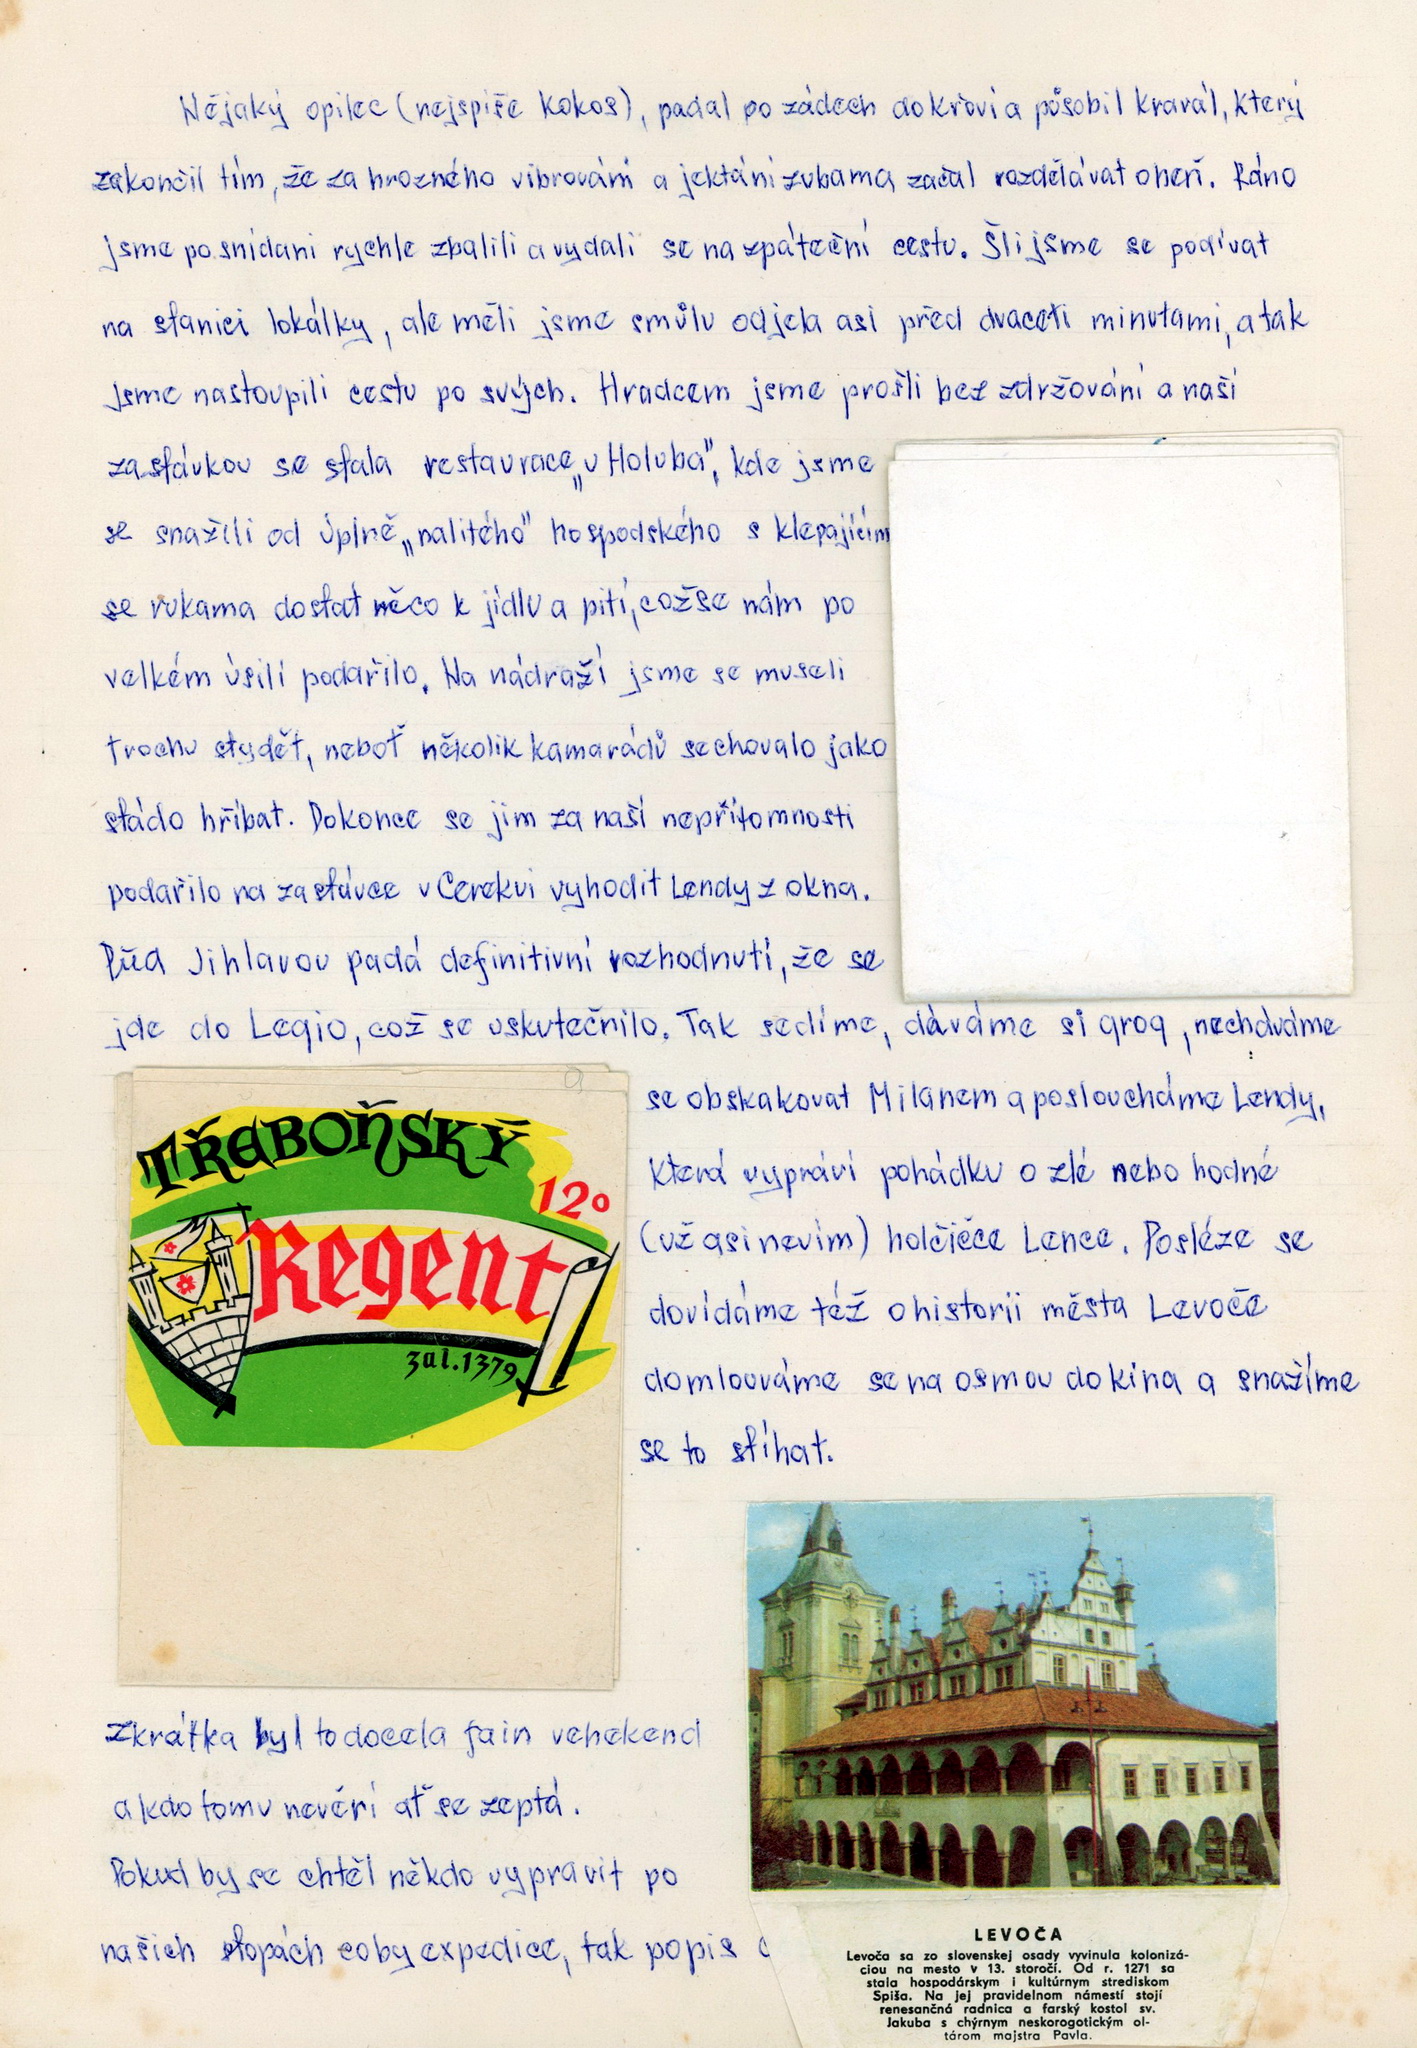 Nějaký opilec (nejspíše Kokos), padal po zádech do křoví a působil kravál, který
zakončil tím, že za hrozného vibrování a jektání zubama začal rozdělávat oheň. Ráno
jsme po snídani rychle zbalili a vydali se na zpáteční cestu. Šli jsme se podívat
na stanici lokálky, ale měli jsme smůlu odjela asi před dvaceti minutami, a tak
jsme nastoupili cestu po svých. Hradcem jsme prošli bez zdržování a naší
zastávkou se stala restaurace „u Holuba", kde jsme
se snažili od úplně „nalitého" hospodského s klepajícím
se rukama dostat něco k jídlu a pití, což se nám po
velkém úsilí podařilo. Na nádraží jsme se museli
trochu stydět, neboť několik kamarádů se chovalo jako
stádo hříbat. Dokonce se jim za naší nepřítomnosti
podařilo na zastávce v Cerekvi vyhodit Lendy z okna.
Před Jihlavou padá definitivní rozhodnutí, že se
jde do Legio, což se uskutečnilo. Tak sedíme, dáváme si grog, necháváme
se obskakovat Milanem a posloucháme Lendy,
která vypráví pohádku o zlé nebo hodné
(už asi nevím) holčičce Lence. Posléze se
dovídáme též o historii města Levoče
domlouváme se na osmou do kina a snažíme
se to stíhat.
TŘEBOŇSKÝ
12°
Regent
zal. 1379
Zkrátka byl to docela fain vehekend
a kdo tomu nevěří ať se zeptá.
Pokud by se chtěl někdo vypravit po
našich stopách coby expedice, tak popis
LEVOČA
Levoča sa zo slovenskej osady vyvinula kolonizá-
ciou na mesto v 13. storočí. Od r. 1271 sa
stala hospodárskym i kultúrnym strediskom
Spiša. Na jej pravidelnom námestí stojí
renesančná radnica a farský kostol sv.
Jakuba s chýrnym neskorogotickým ol-
tárom majstra Pavla.